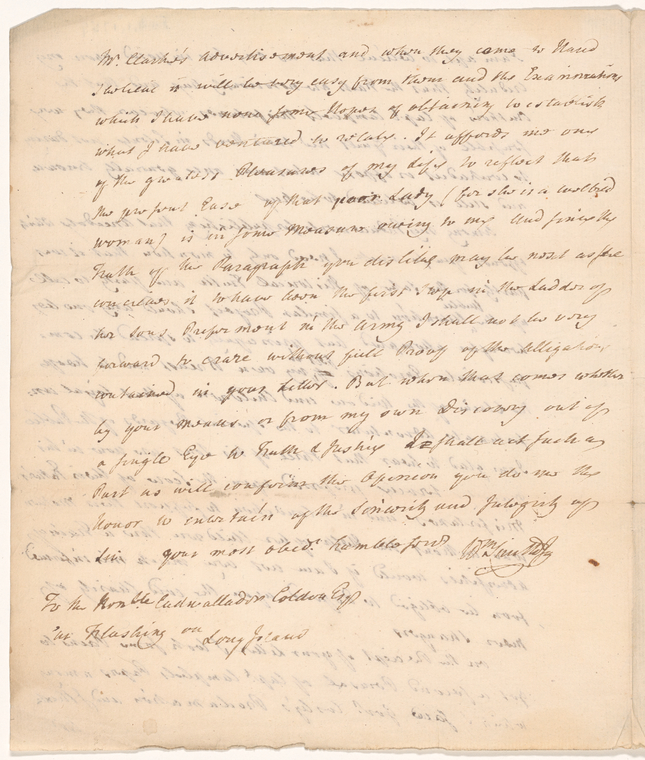 Mr. Clarke's advertisement and when they came to Hand
I believe it will be very easy from them and the Examinations
which I have now some Hopes of obtaining to establish
what I have ventured to relate. It affords me one
of the greatest Pleasures of my Life to reflect that
the present Ease of that poor Lady (for she is a wellbred
woman) is in some Measure owing to me and since the
Truth of the Paragraph you dislike may be next as she
conceives it to have been the first Step in the Ladder of
her sons Preferment in the Army I shall not be very
forward to craze without full Proof of the Allegations
contained in your Letter. But when that comes whether
by your Means or from my own Discovery out of
a single Eye to Truth & Justice I shall act such a
Part as will confirm the Opinion you do me the
honor to entertain of the Sincerity and Integrity of
Sir your most obedt. humble Servt Wm Smith
To the Honble Cadwallader Colden Esqr
at Flushing on Long Island